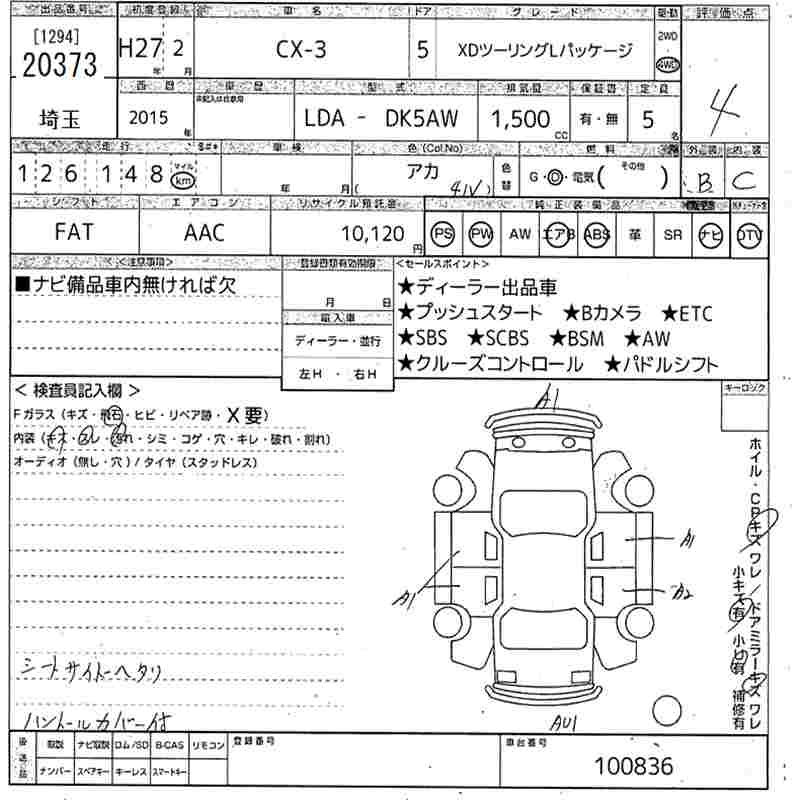 出品番号 初度登録 車名 ドア グレード 駆動 評価点
[1294]
20373
H27年 2月
CX-3
5
XDツーリングLパッケージ
2WD
4WD
4
埼玉
西暦 車歴 型式 排気量 保証書 定員
2015年
LDA - DK5AW
1,500cc
有・無
5名
走行 車検 色(Col.No) 燃料 外装 内装
126,148
マイル
km
年 月
アカ
(41V)
色替
G・D・電気( その他 )
B
C
シフト エアコン リサイクル預託金 純正装備品
FAT
AAC
10,120円
PS PW AW エアB ABS 革 SR ナビ DTV
<注意事項>
■ナビ備品車内無ければ欠
登録書類有効期限
月 日
輸入車
ディーラー・並行
左H ・ 右H
<セールスポイント>
★ディーラー出品車
★プッシュスタート ★Bカメラ ★ETC
★SBS ★SCBS ★BSM ★AW
★クルーズコントロール ★パドルシフト
< 検査員記入欄 >
Fガラス (キズ・飛石・ヒビ・リペア跡・X要)
内装 (キズ・スレ・汚れ・シミ・コゲ・穴・キレ・破れ・割れ)
オーディオ (無し・穴) / タイヤ (スタッドレス)
シートサイドヘタリ
ハンドルカバー付
キーロック
A1
A1
A1
A2
AU1
ホイル・CPキズ ワレ / ドアミラーキズ ワレ
小キズ有 小凹有 補修有
後送品
取説 ナビ取説 ロム/SD B-CAS リモコン
ナンバー スペアキー キーレス スマートキー
登録番号
車台番号
100836